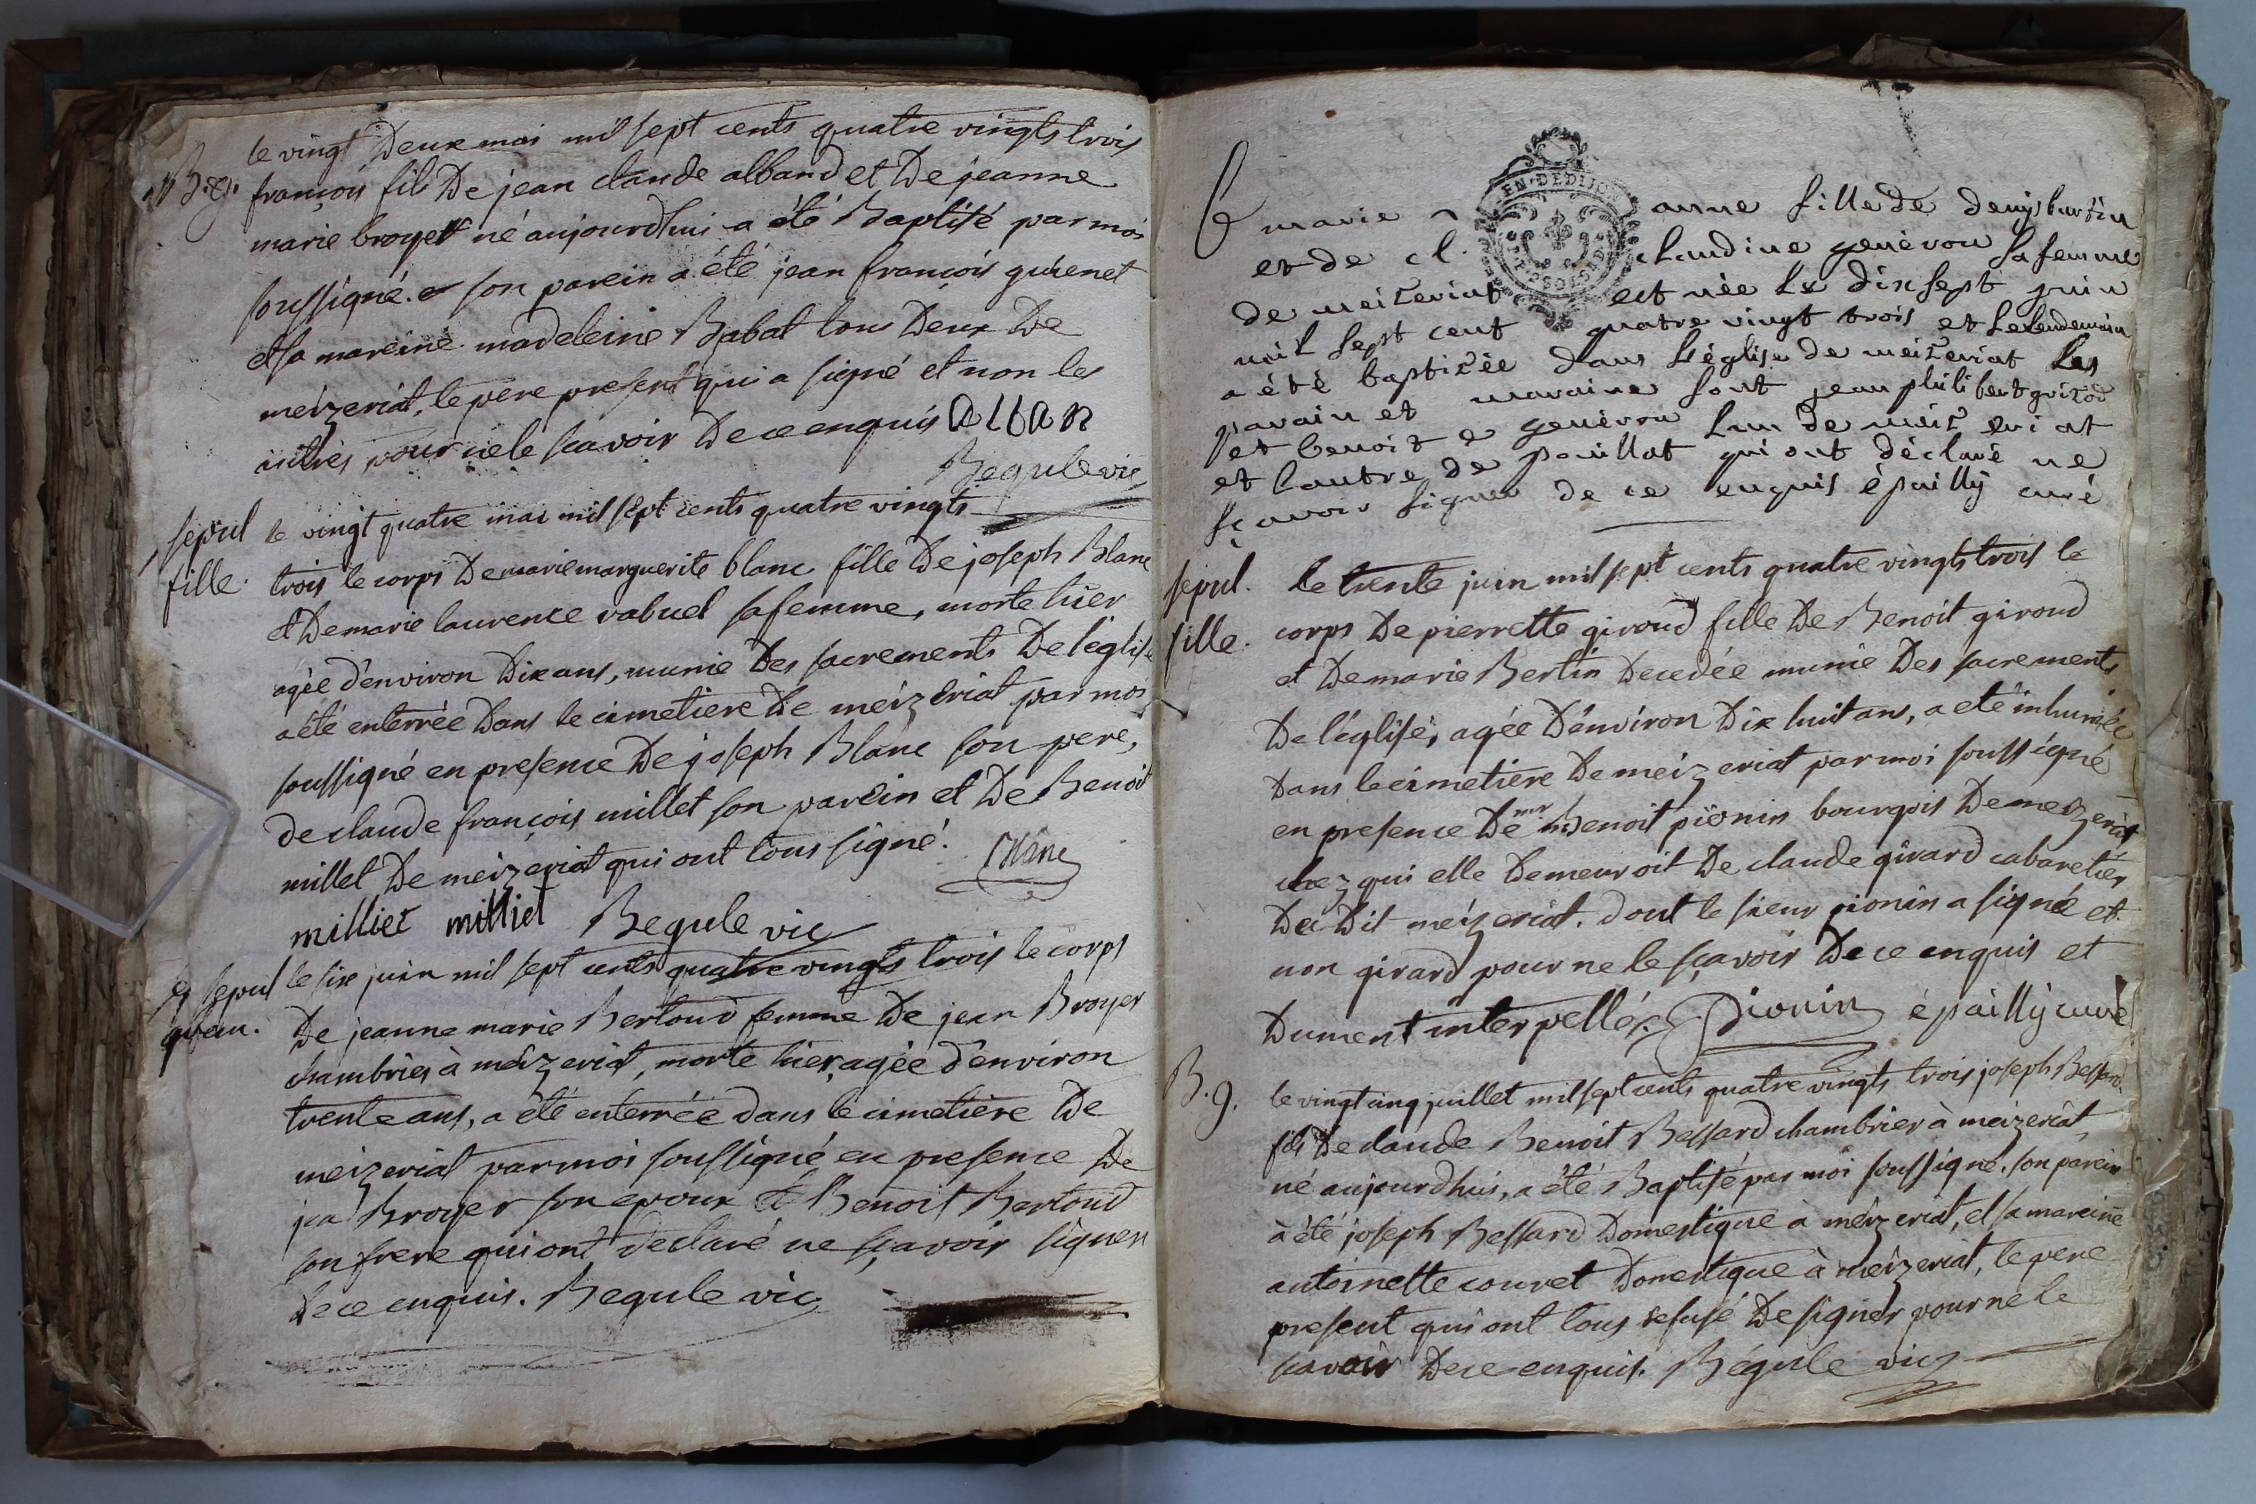 le vingt Deux mai mil sept cents quatre vingts trois
B. g. françois fils De jean claude alband et De jeanne
marie broyer né aujourdhui a été Baptisé par moi
soussigné. son parein a été jean françois guienet
et sa mareine madeleine Rabat tous Deux De
meizeriat, le pere present qui a signé et non les
autres pour ne le sçavoir De ce enquis alban
Begule vic
sepul le vingt quatre mai mil sept cents quatre vingts
fille. trois le corps De marie marguerite blanc fille De joseph Blanc
et De marie laurence vabuel sa femme, morte hier
agée d'environ Dix ans, munie Des sacrements De l'église
a été enterrée Dans le cimetiere De meizeriat par moi
soussigné en presence De joseph Blanc son pere,
de claude françois millet son parein et De Benoit
millet De meizeriat qui ont tous signé. Blanc
milliet milliet Begule vic
sepul le six juin mil sept cents quatre vingts trois le corps
De jeanne marie Bertoud femme De jean Broyer
chambrier à meizeriat, morte hier, agée d'environ
trente ans, a été enterrée dans le cimetiere De
meizeriat par moi soussigné en presence De
jea Broyer son epoux et Benoit Bertoud
son frere qui ont declaré ne sçavoir signer
De ce enquis. Begule vic
EN·DEDIJON
marie anne fille de denis burtin
et de cl. claudine genévou sa femme
de meizeriat est née le dix sept juin
mil sept cent quatre vingt trois et le lendemain
a été baptizée dans l'église de meizeriat les
parain et maraine sont jean philibert grizod
et benoite genévou l'un de meizeriat
et l'autre de pouillat qui ont déclaré ne
sçavoir signer de ce enquis épailly curé
sepul. le trente juin mil sept cents quatre vingts trois le
fille. corps De pierrette giroud fille De Benoit giroud
et De marie Bertin Decedée munie Des sacrements
De l'église, agée D'environ Dix huit ans, a été inhumée
Dans le cimetiere De meizeriat par moi soussigné
en presence De mr Benoit pionin bourgois De meizeriat
chez qui elle Demeuroit De claude girard cabaretier
Du Dit meizeriat. dont le sieur pionin a signé et
non girard pour ne le sçavoir De ce enquis et
Dument interpellé. Pionin épailly curé
B. g. le vingt cinq juillet mil sept cents quatre vingts trois joseph Bessard
fils De claude Benoit Bessard chambrier à meizeriat,
né aujourdhui, a été Baptisé par moi soussigné. son parein
à été joseph Bessard Domestique a meizeriat, et sa mareine
antoinette couvet Domestique à meizeriat, le pere
present qui ont tous refusé De signer pour ne le
savoir De ce enquis. Bégule vic